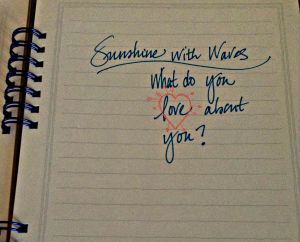 Sunshine with Waves
What do you
love about
you?